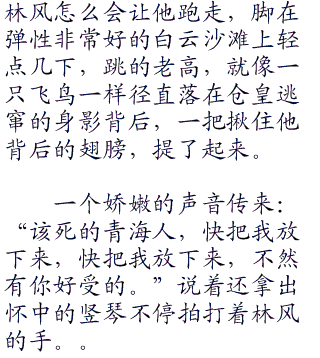 林风怎么会让他跑走，脚在
弹性非常好的白云沙滩上轻
点几下，跳的老高，就像一
只飞鸟一样径直落在仓皇逃
窜的身影背后，一把揪住他
背后的翅膀，提了起来。
一个娇嫩的声音传来：
“该死的青海人，快把我放
下来，快把我放下来，不然
有你好受的。”说着还拿出
怀中的竖琴不停拍打着林风
的手。。